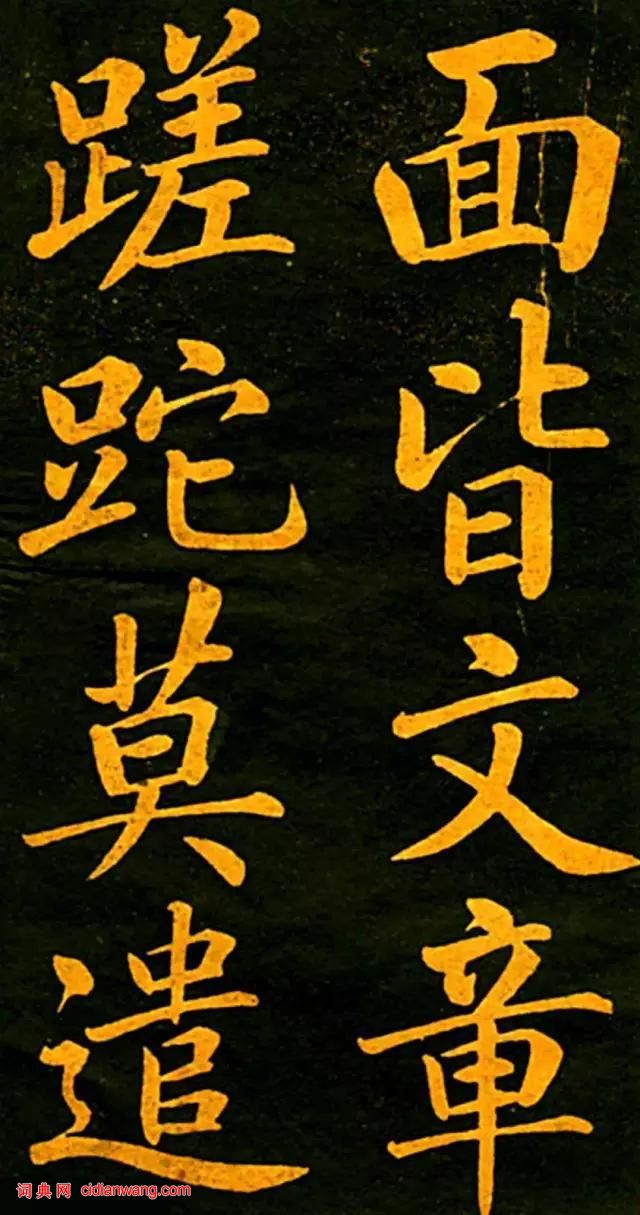 面皆文章
蹉跎莫遣
词典网 cidianwang.com